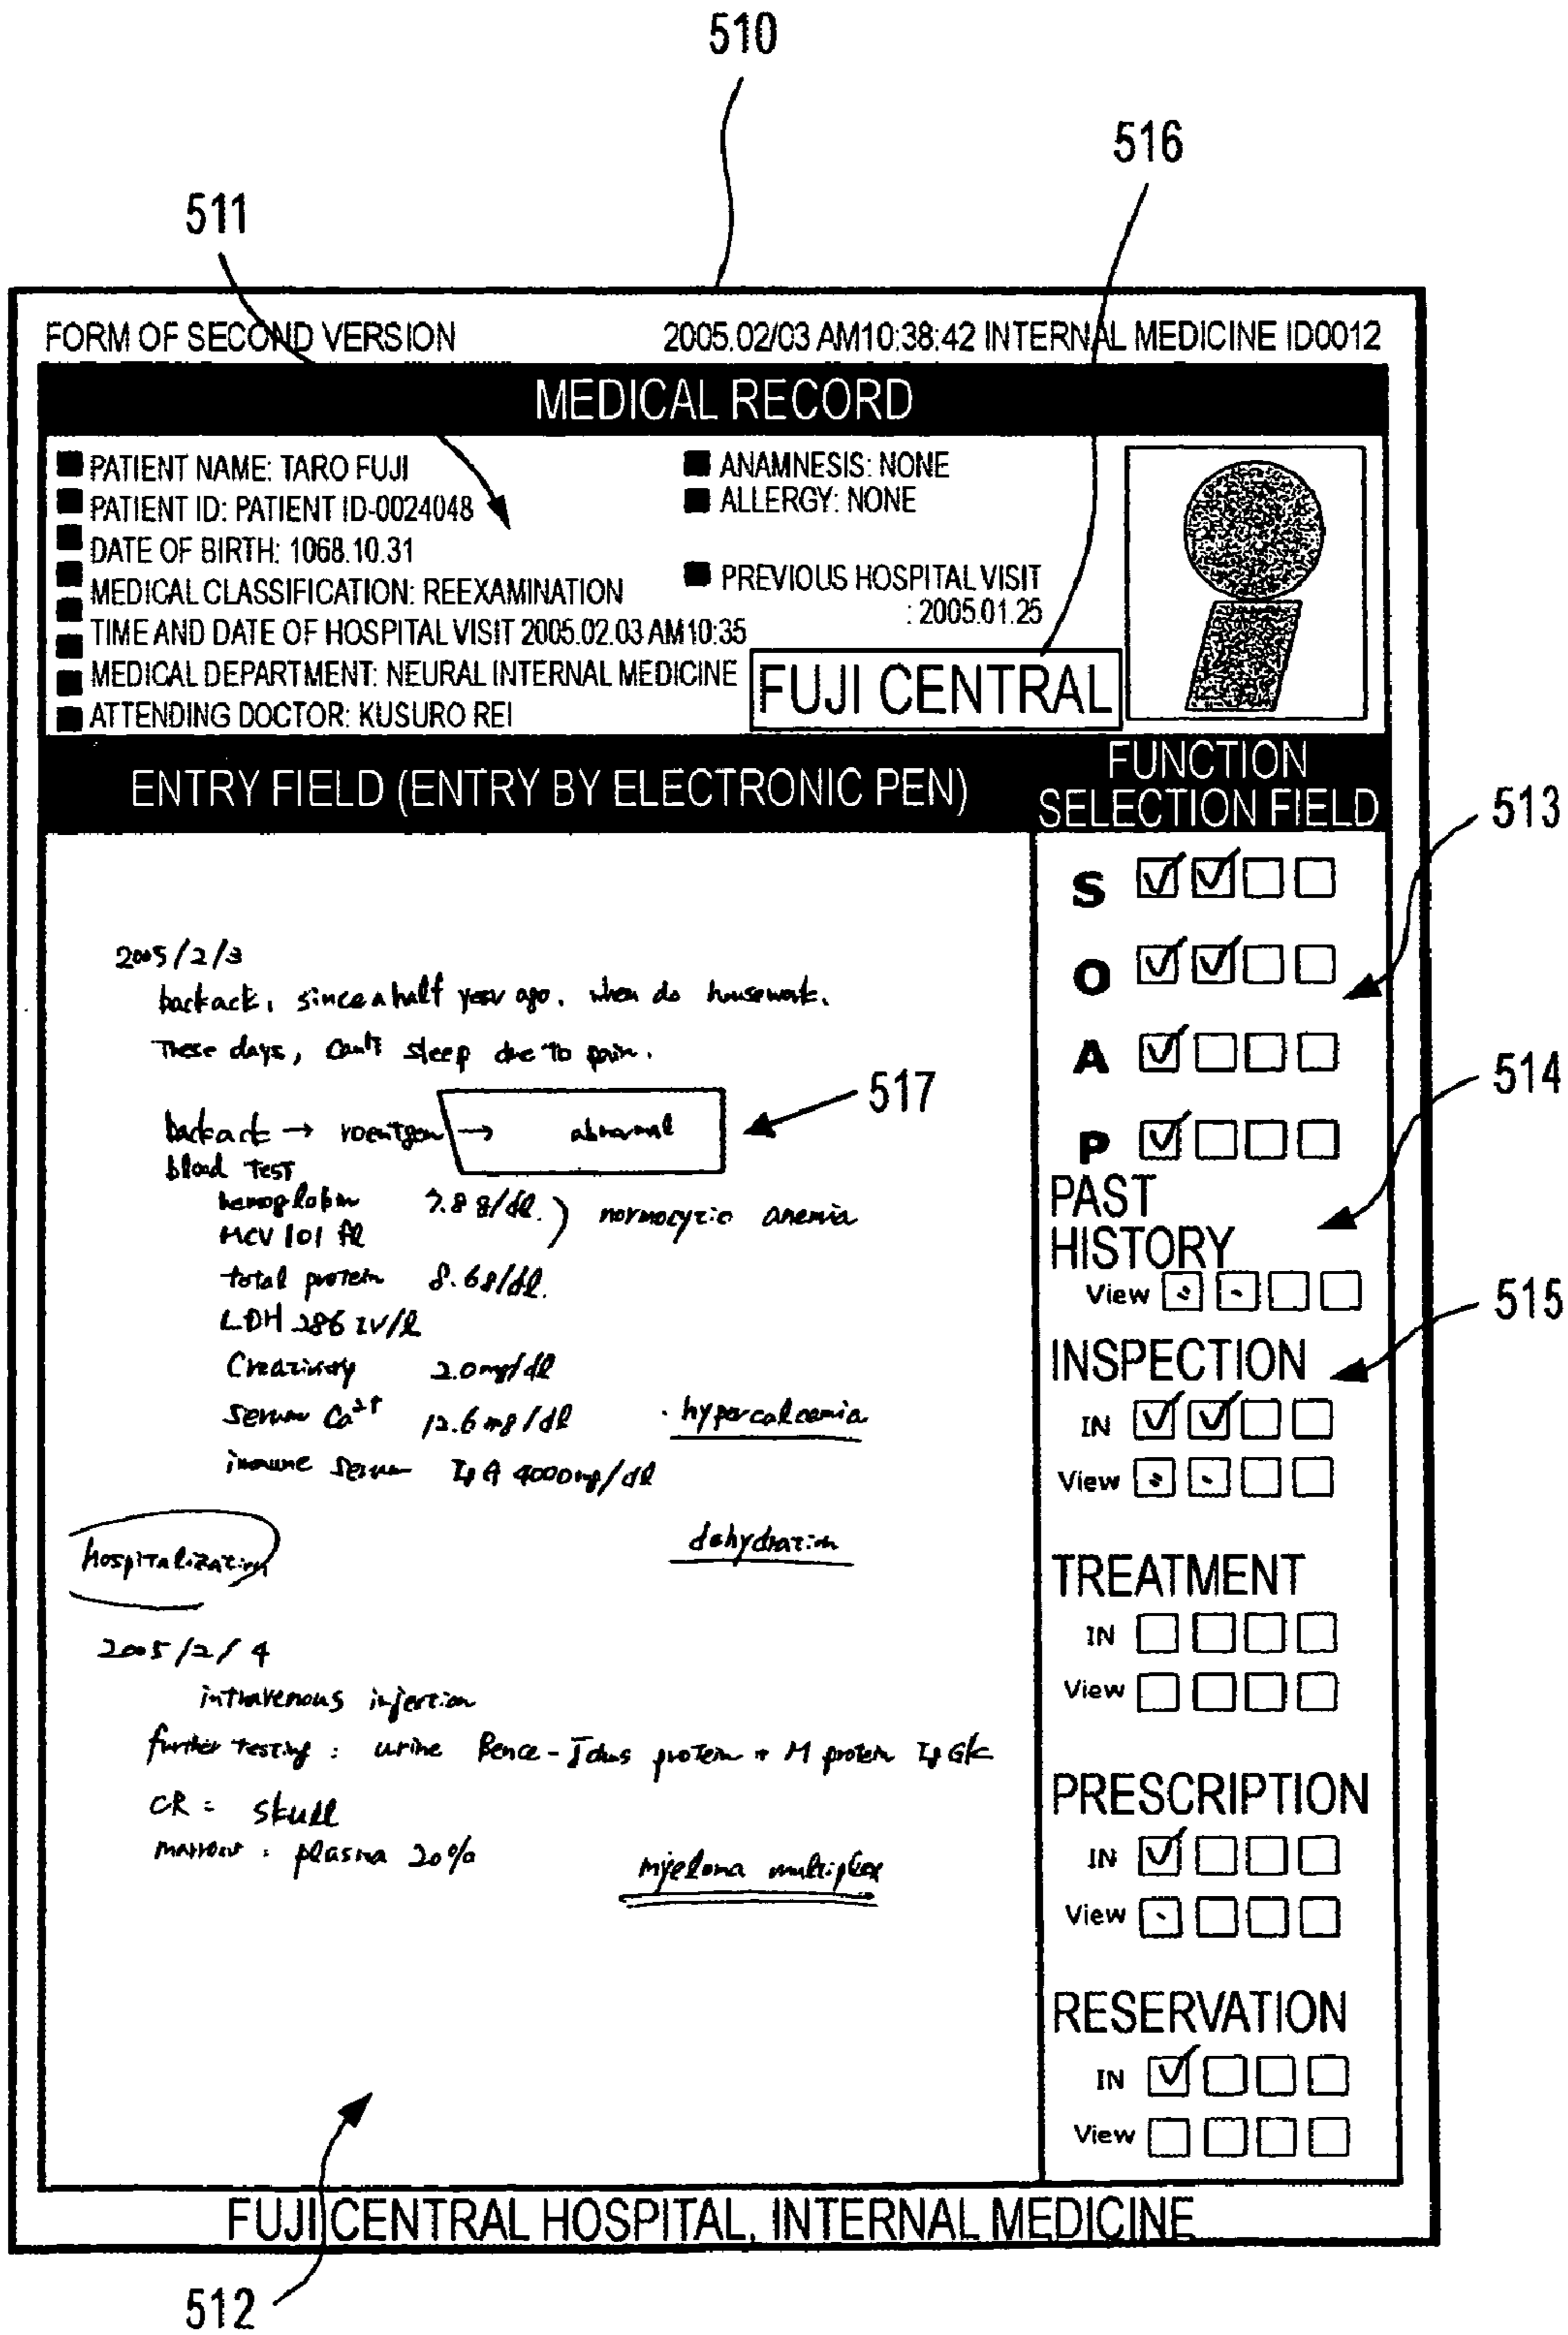 510
516
511
FORM OF SECOND VERSION 2005.02/03 AM10:38:42 INTERNAL MEDICINE ID0012
MEDICAL RECORD
PATIENT NAME: TARO FUJI
PATIENT ID: PATIENT ID-0024048
DATE OF BIRTH: 1068.10.31
MEDICAL CLASSIFICATION: REEXAMINATION
TIME AND DATE OF HOSPITAL VISIT 2005.02.03 AM10:35
MEDICAL DEPARTMENT: NEURAL INTERNAL MEDICINE
ATTENDING DOCTOR: KUSURO REI
ANAMNESIS: NONE
ALLERGY: NONE
PREVIOUS HOSPITAL VISIT
: 2005.01.25
FUJI CENTRAL
ENTRY FIELD (ENTRY BY ELECTRONIC PEN)
2005/2/3
backack, since a half year ago, when do housework.
These days, can't sleep due to pain.
backack → roentgen → abnormal
517
blood test
hemoglobin 7.8 g/dl. ) normocytic anemia
MCV 101 fl
total protein 8.6g/dl.
LDH 286 IV/l
2.0mg/dl
serum Ca2+ 12.6 mg/dl · hypercalcemia
immune serum IgA 4000mg/dl
dehydration
hospitalization
2005/2/4
intravenous injection
further testing : urine Bence-Johns protein + M protein IgGk
CR = skull
marrow : plasma 20%
myeloma multiplex
512
FUNCTION
SELECTION FIELD
513
S
O
A
P
514
PAST
HISTORY
View
515
INSPECTION
IN
View
TREATMENT
IN
View
PRESCRIPTION
IN
View
RESERVATION
IN
View
FUJI CENTRAL HOSPITAL, INTERNAL MEDICINE